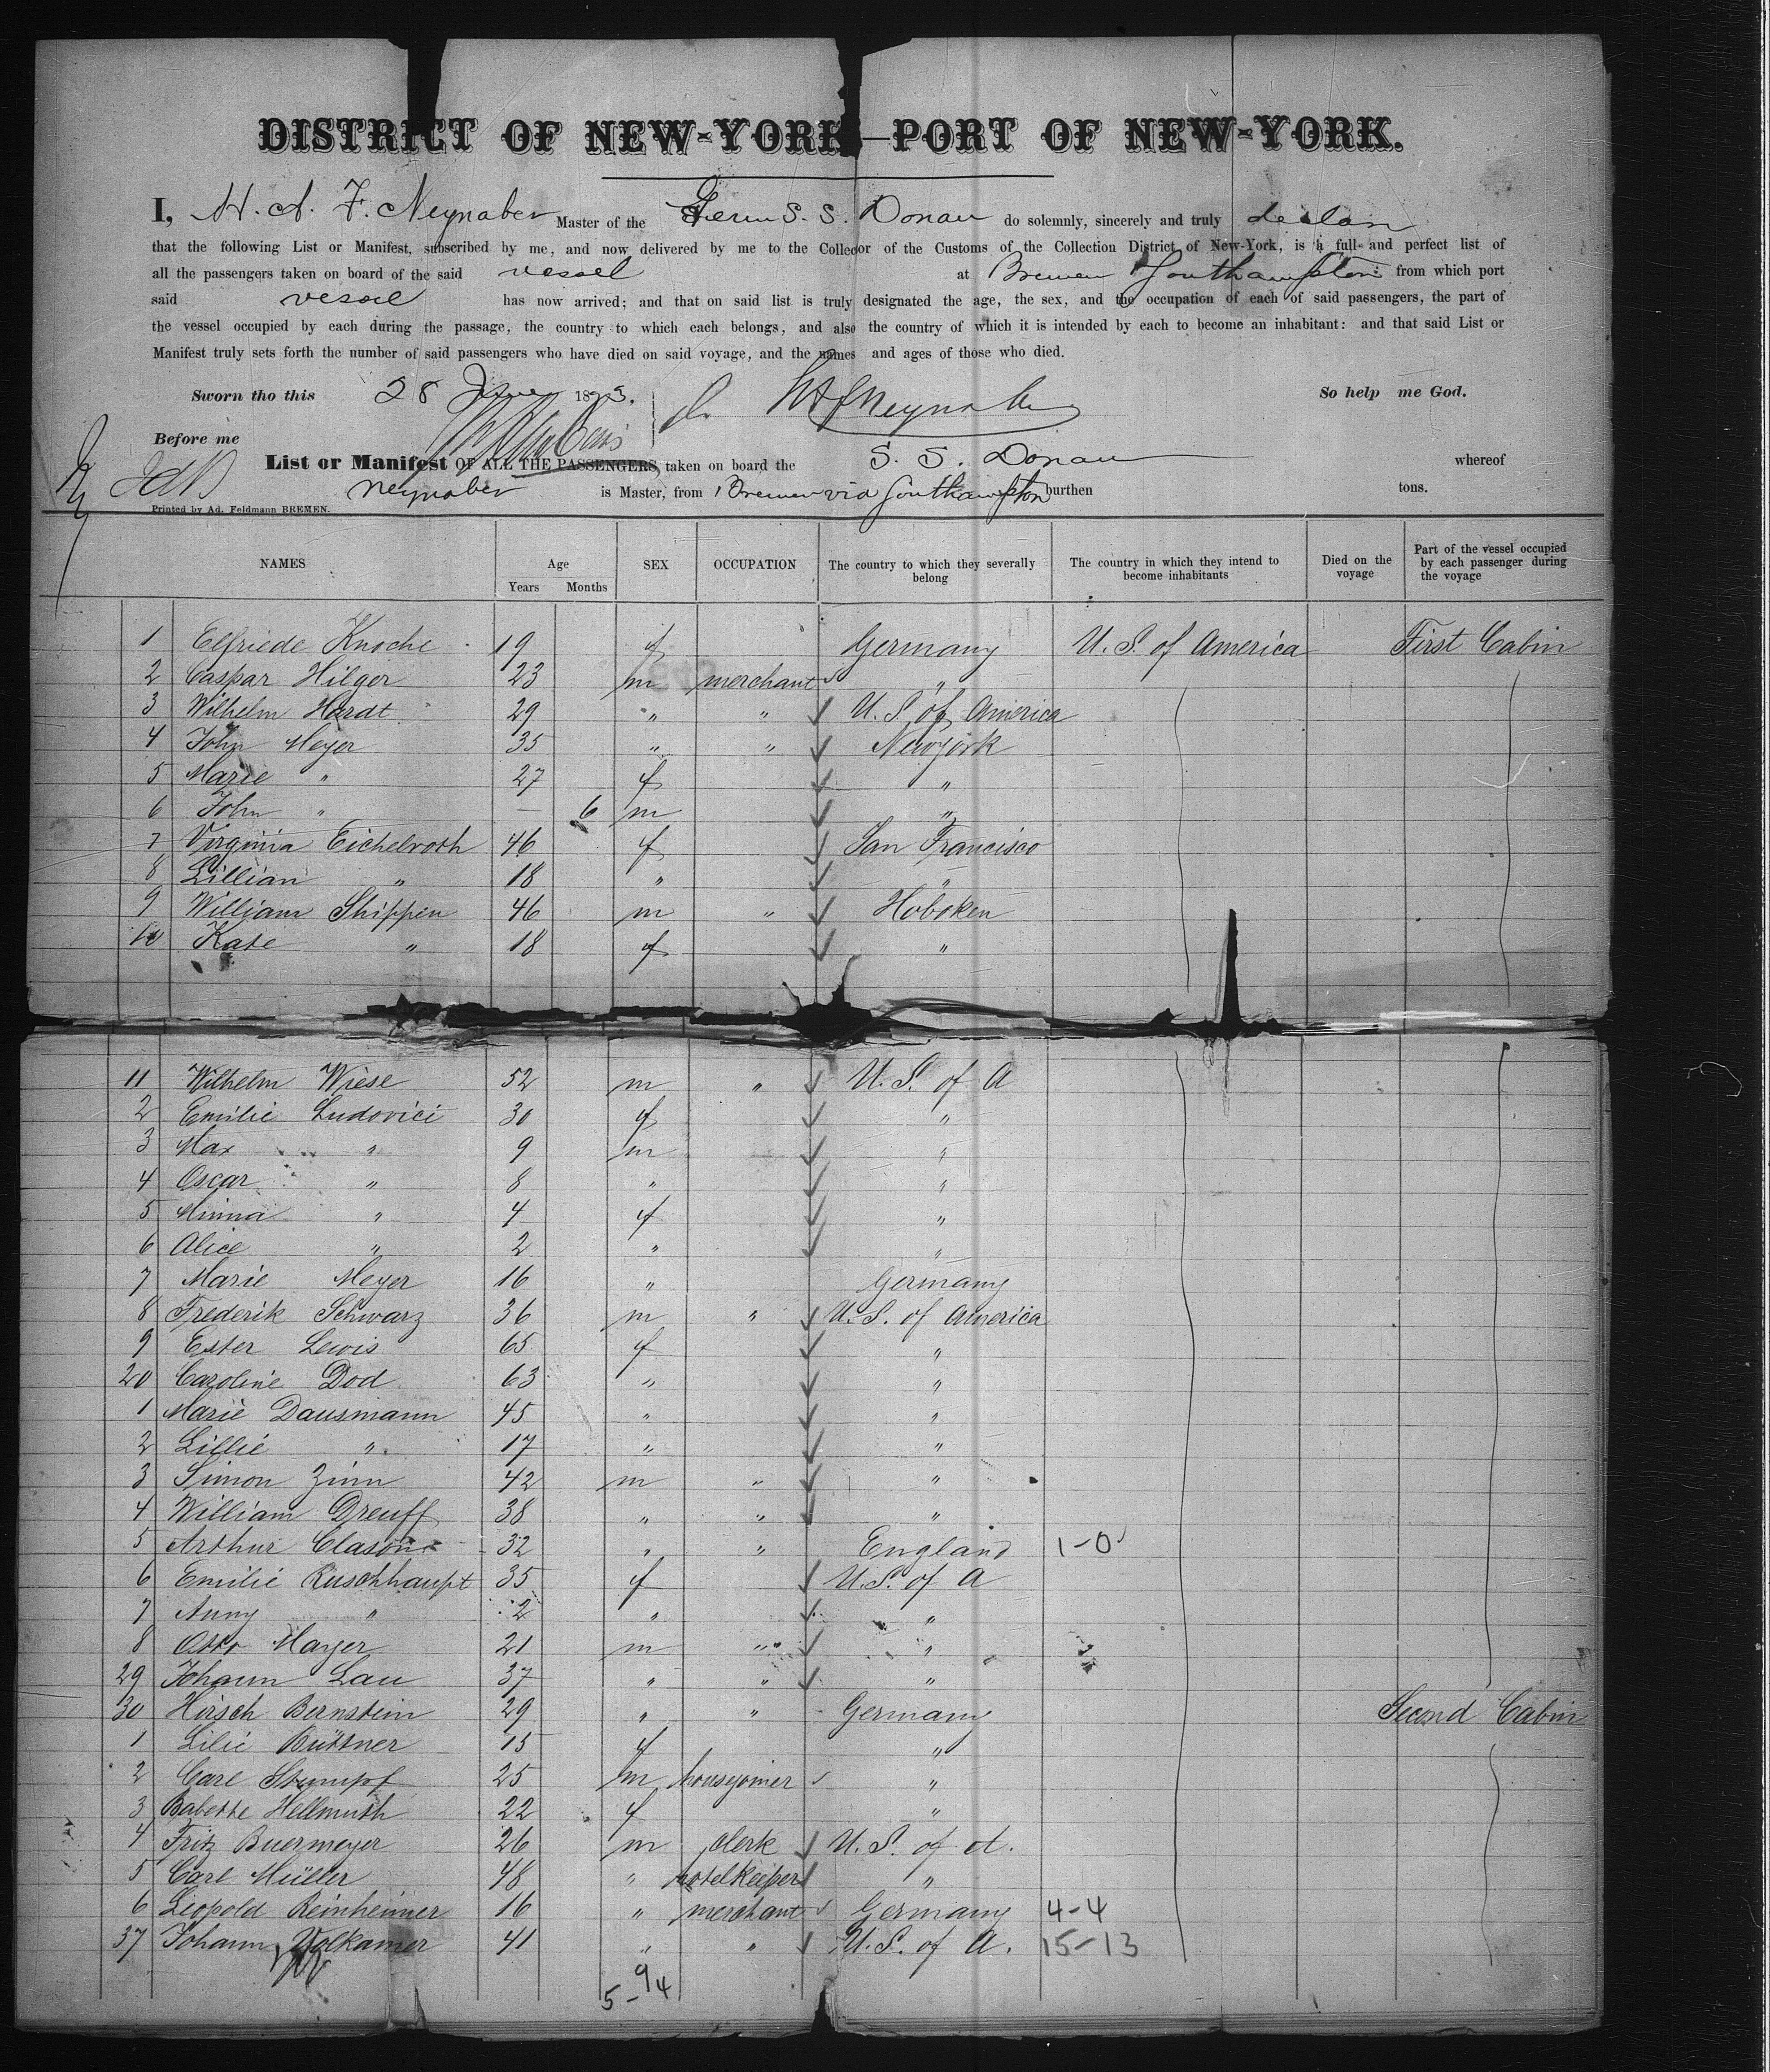 DISTRICT OF NEW-YORK—PORT OF NEW-YORK.
I, H. A. F. Neynaber Master of the Germ S. S. Donau do solemnly, sincerely and truly declare
that the following List or Manifest, subscribed by me, and now delivered by me to the Collector of the Customs of the Collection District of New-York, is a full and perfect list of
all the passengers taken on board of the said vessel at Bremen Southampton from which port
said vessel has now arrived; and that on said list is truly designated the age, the sex, and the occupation of each of said passengers, the part of
the vessel occupied by each during the passage, the country to which each belongs, and also the country of which it is intended by each to become an inhabitant: and that said List or
Manifest truly sets forth the number of said passengers who have died on said voyage, and the names and ages of those who died.
Sworn tho this 28 187 HAFNeynaber So help me God.
Before me
List or Manifest OF ALL THE PASSENGERS, taken on board the S. S. Donau whereof
Neynaber is Master, from Bremen via Southampton burthen tons.
Printed by Ad. Feldmann BREMEN.
NAMES Age Years Months SEX OCCUPATION The country to which they severally belong The country in which they intend to become inhabitants Died on the voyage Part of the vessel occupied by each passenger during the voyage
1 Elfriede Knoche 19 f Germany U. S. of America First Cabin
2 Caspar Hilger 23 m merchant "
3 Wilhelm Hardt 29 " " U. S. of America
4 John Meyer 35 " " Newyork
5 Marie " 27 f "
6 John " — 6 m "
7 Virginia Eichelroth 46 f San Francisco
8 Lillian " 18 " "
9 William Shippen 46 m " Hoboken
10 Kate " 18 f "
11 Wilhelm Wiese 52 m " U. S. of A
2 Emilie Ludovici 30 f "
3 Max " 9 m "
4 Oscar " 8 " "
5 Minna " 4 f "
6 Alice " 2 " "
7 Marie Meyer 16 " Germany
8 Frederik Schwarz 36 m " U. S. of America
9 Ester Lewis 65 f "
20 Caroline Dod 63 " "
1 Marie Dausmann 45 " "
2 Lillie " 17 " "
3 Simon Zinn 42 m " "
4 William Dreuff 38 " " "
5 Arthur Clason 32 " " England 1-0
6 Emilie Ruschhaupt 35 f U. S. of A
7 Anny " 2 " "
8 Otto Mayer 21 m " "
29 Johann Lau 37 " " "
30 Hirsch Bernstein 29 " " Germany Second Cabin
1 Lilie Büttner 15 f "
2 Carl Stumpf 25 m housejoiner "
3 Babette Hellmuth 22 f "
4 Fritz Buermeyer 26 m clerk U. S. of A.
5 Carl Müller 48 " hotelkeeper "
6 Leopold Reinheimer 16 " merchant Germany 4-4
37 Johann Volkamer 41 " " U. S. of A. 15-13
9
5-4